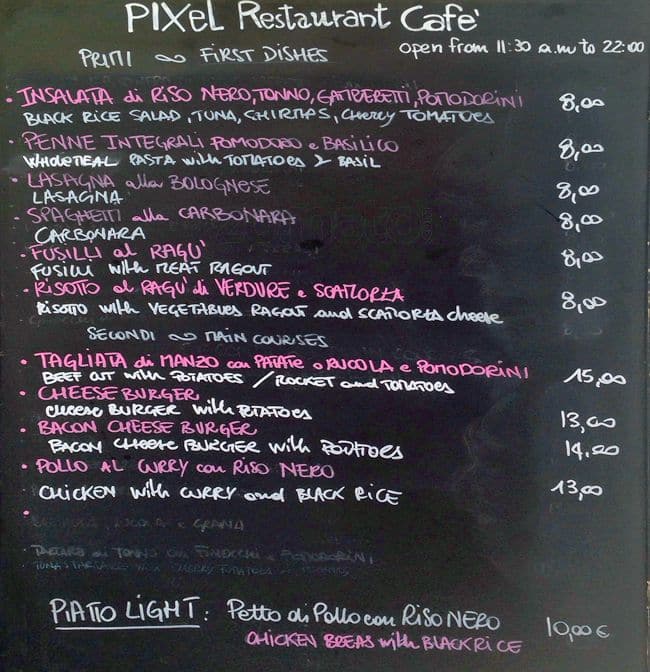 PIXEL Restaurant Cafè
PRIMI ∞ FIRST DISHES
open from 11:30 a.m to 22:00
• INSALATA di RISO NERO, TONNO, GAMBERETTI, POMODORINI 8,00
BLACK RICE SALAD, TUNA, SHIRIMPS, CHERRY TOMATOES
• PENNE INTEGRALI POMODORO e BASILICO 8,00
WHOLEMEAL PASTA with TOMATOES & BASIL
• LASAGNA alla BOLOGNESE 8,00
LASAGNA
• SPAGHETTI alla CARBONARA 8,00
CARBONARA
• FUSILLI al RAGU' 8,00
FUSILLI with MEAT RAGOUT
• RISOTTO al RAGU' di VERDURE e SCAMORZA 8,00
RISOTTO with VEGETABLES RAGOUT and SCAMORZA cheese
SECONDI ∞ MAIN COURSES
• TAGLIATA di MANZO con PATATE o RUCOLA e POMODORINI 15,00
BEEF CUT with POTATOES / ROCKET and TOMATOES
• CHEESE BURGER 13,00
CHEESE BURGER with POTATOES
• BACON CHEESE BURGER 14,00
BACON CHEESE BURGER with POTATOES
• POLLO AL CURRY con RISO NERO 13,00
CHICKEN with CURRY and BLACK RICE
RUCOLA e GRANA
TARTARE di TONNO con FINOCCHI e POMODORINI
PIATTO LIGHT: Petto di Pollo con RISO NERO 10,00 €
CHICKEN BREAS with BLACK RICE